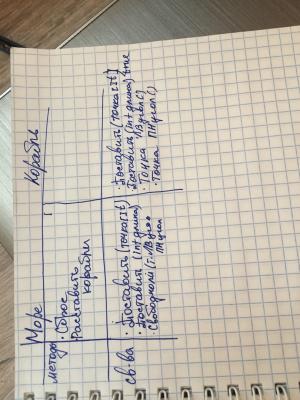 Море
Корабль
методы
• Сброс
• Расставить
корабли
св-ва
• Поставить (точка[] t)
• Поставить (int длина)
• Свободной (т. ЛВугол
ПНугол
• Поставить (точка[] t)
• Поставить (int длина)
• Точка ЛВугол()
• Точка ПНугол()